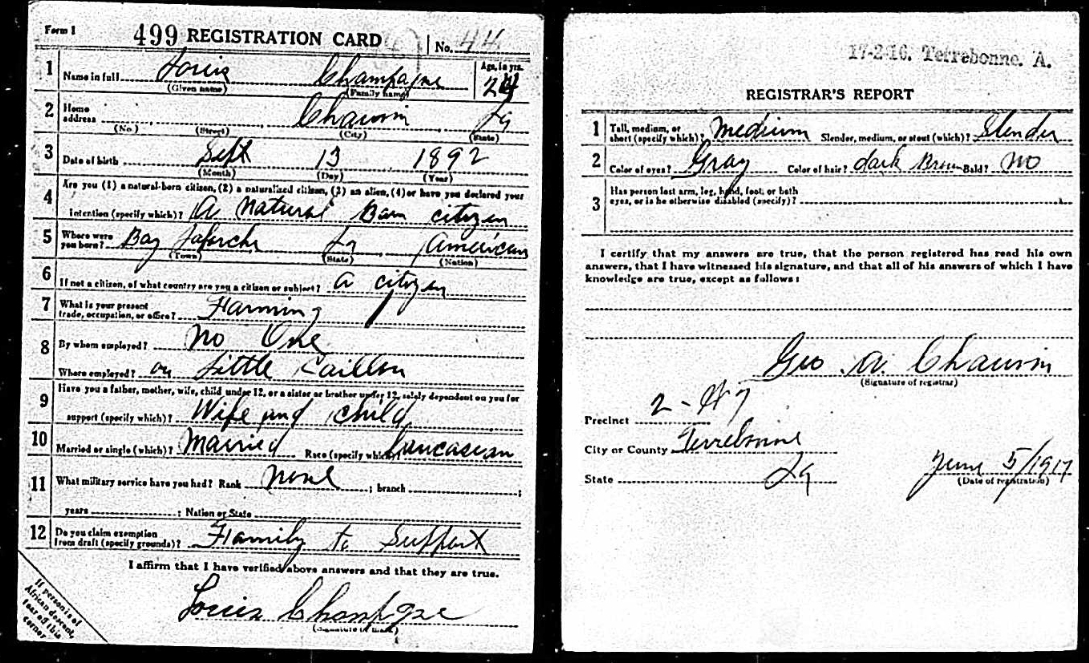 Form 1 499 REGISTRATION CARD No. 44
1 Name in full Louis Champagne Age, in yrs. 24
(Given name) (Family name)
2 Home address Chauvin La
(No.) (Street) (City) (State)
3 Date of birth Sept 13 1892
(Month) (Day) (Year)
4 Are you (1) a natural-born citizen, (2) a naturalized citizen, (3) an alien, (4) or have you declared your
intention (specify which)? A natural Born citizen
5 Where were you born? Bay Laforche La American
(Town) (State) (Nation)
6 If not a citizen, of what country are you a citizen or subject? a citizen
7 What is your present trade, occupation, or office? Farming
8 By whom employed? No One
Where employed? on Little Caillou
9 Have you a father, mother, wife, child under 12, or a sister or brother under 12, solely dependent on you for
support (specify which)? Wife and child
10 Married or single (which)? Married Race (specify which)? Caucasian
11 What military service have you had? Rank none ; branch ;
years ; Nation or State
12 Do you claim exemption from draft (specify grounds)? Family to Support
I affirm that I have verified above answers and that they are true.
Louis Champgne
(Signature or mark)
If person is of African descent, tear off this corner
17-2-16. Terrebonne. A.
REGISTRAR'S REPORT
1 Tall, medium, or short (specify which)? Medium Slender, medium, or stout (which)? Slender
2 Color of eyes? Gray Color of hair? dark Brown Bald? No
3 Has person lost arm, leg, hand, foot, or both eyes, or is he otherwise disabled (specify)?
I certify that my answers are true, that the person registered has read his own
answers, that I have witnessed his signature, and that all of his answers of which I have
knowledge are true, except as follows:
Geo A. Chauvin
(Signature of registrar)
Precinct 2-47
City or County Terrebonne
State La June 5/1917
(Date of registration)